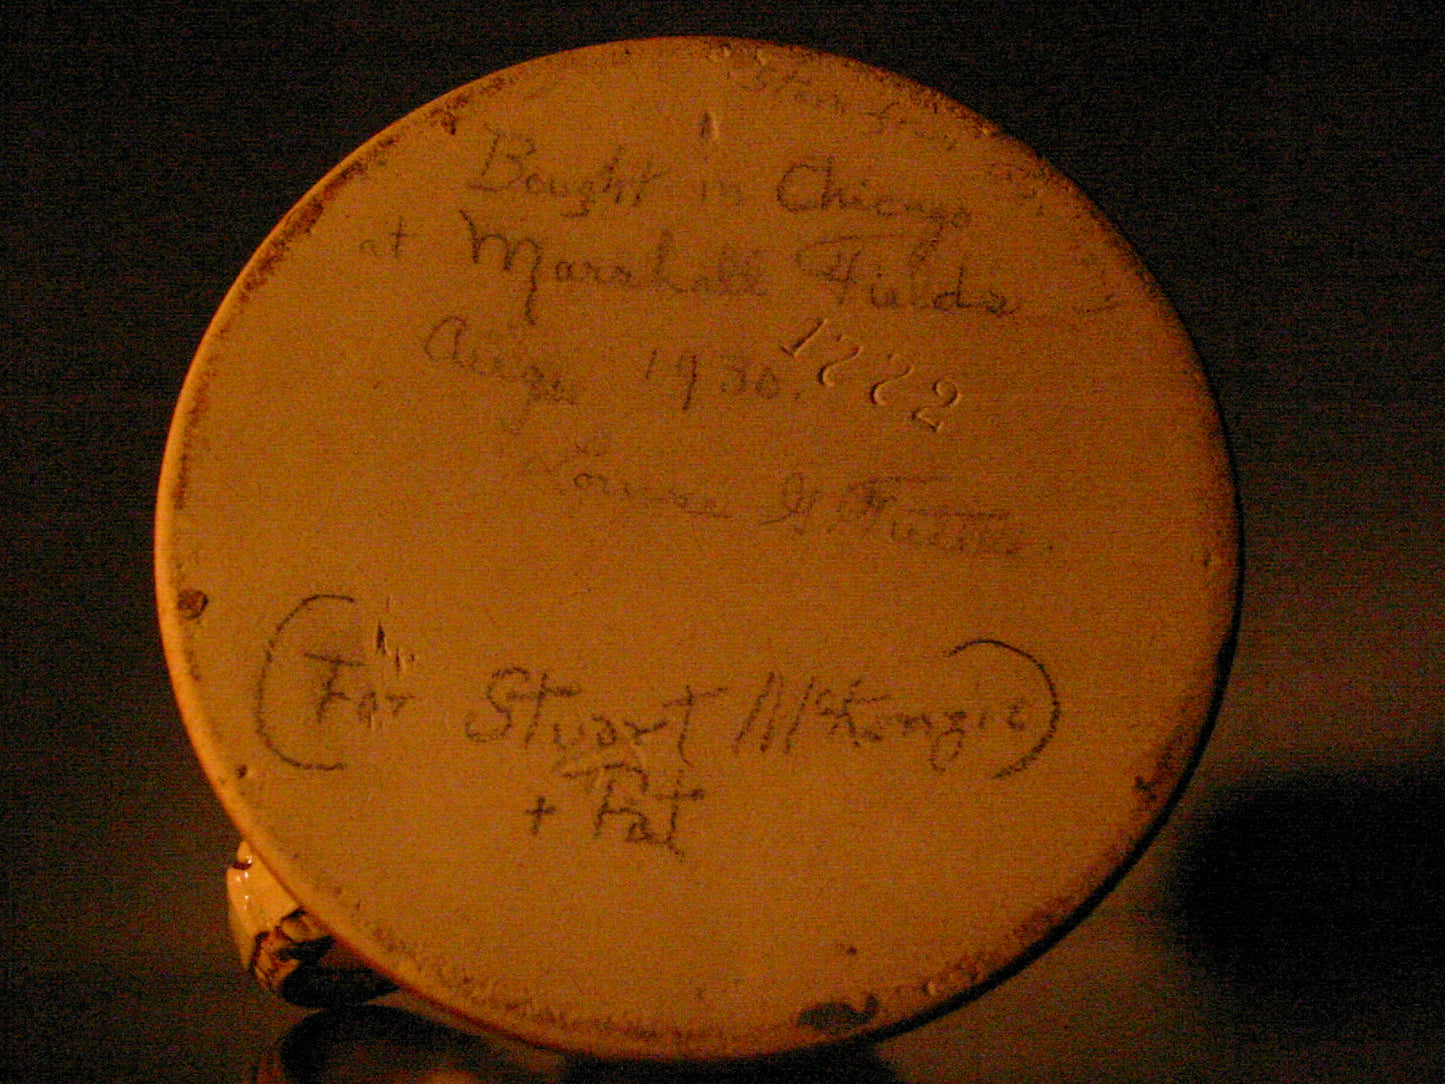 Bought in Chicago
at Marshall Fields
Aug 1930.
1772
Louise G.
(For Stuart McKenzie)
+ Pat